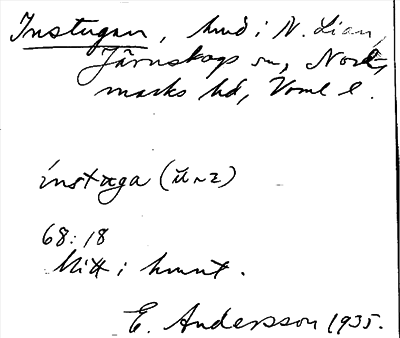 Instugan, hmd i N. Lian,
Järnskogs sn, Nord-
marks hd, Vrml l.
instuga (ú~2)
68:18
Mitt i hmnt.
E. Andersson 1935.